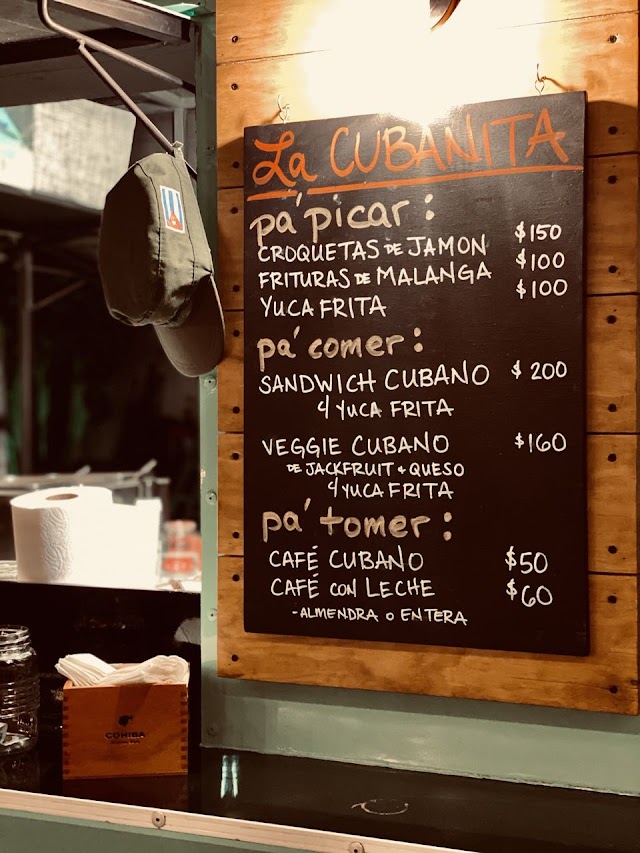 La CUBANITA
pa' picar:
CROQUETAS DE JAMON $150
FRITURAS DE MALANGA $100
YUCA FRITA $100
pa' comer:
SANDWICH CUBANO $200
y YUCA FRITA
VEGGIE CUBANO $160
DE JACKFRUIT + QUESO
y YUCA FRITA
pa' tomer:
CAFÉ CUBANO $50
CAFÉ CON LECHE $60
-ALMENDRA O ENTERA
COHIBA